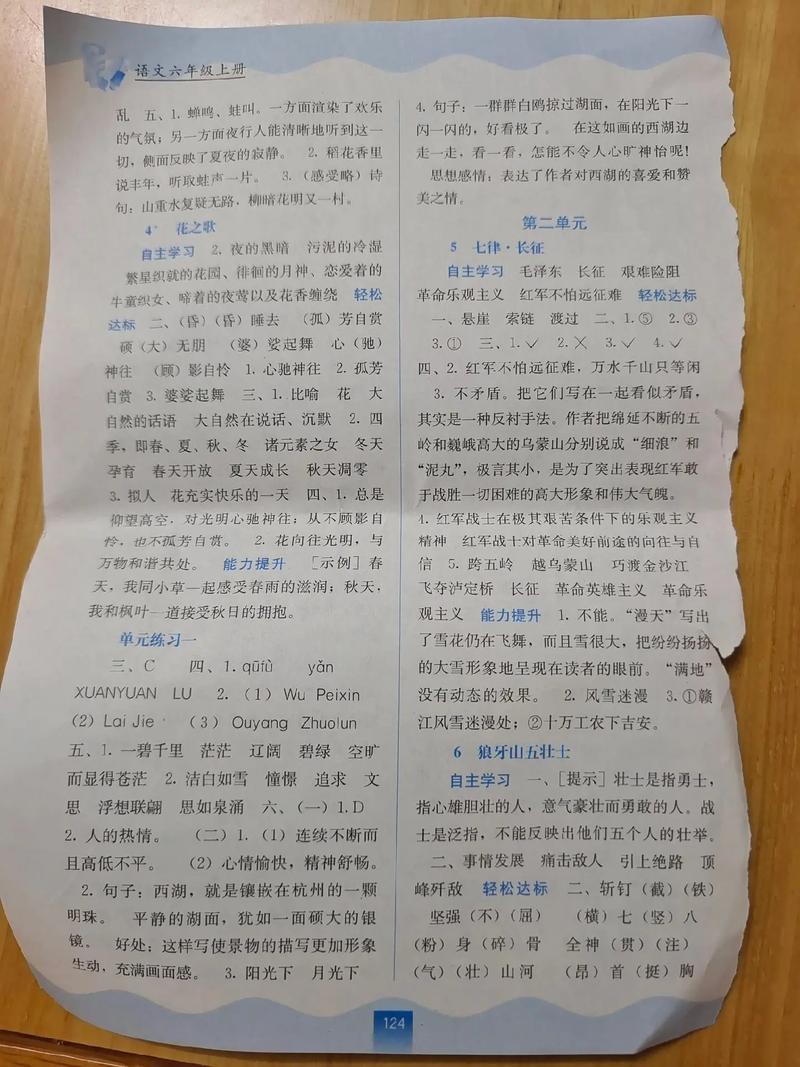 语文六年级上册
乱 五、1. 蝉鸣、蛙叫。一方面渲染了欢乐
的气氛；另一方面夜行人能清晰地听到这一
切，侧面反映了夏夜的寂静。 2. 稻花香里
说丰年，听取蛙声一片。 3.（感受略）诗
句：山重水复疑无路，柳暗花明又一村。
4* 花之歌
自主学习 2. 夜的黑暗 污泥的冷湿
繁星织就的花园、徘徊的月神、恋爱着的
牛童织女、啼着的夜莺以及花香缠绕 轻松
达标 二、（昏）（昏）睡去 （孤）芳自赏
硕（大）无朋 （婆）娑起舞 心（驰）
神往 （顾）影自怜 1. 心驰神往 2. 孤芳
自赏 3. 婆娑起舞 三、1. 比喻 花 大
自然的话语 大自然在说话、沉默 2. 四
季，即春、夏、秋、冬 诸元素之女 冬天
孕育 春天开放 夏天成长 秋天凋零
3. 拟人 花充实快乐的一天 四、1. 总是
仰望高空，对光明心驰神往；从不顾影自
怜，也不孤芳自赏。 2. 花向往光明，与
万物和谐共处。 能力提升 ［示例］春
天，我同小草一起感受春雨的滋润；秋天，
我和枫叶一道接受秋日的拥抱。
单元练习一
三、C 四、1. qūfù yǎn
XUANYUAN LU 2.（1）Wu Peixin
（2）Lai Jie （3）Ouyang Zhuolun
五、1. 一碧千里 茫茫 辽阔 碧绿 空旷
而显得苍茫 2. 洁白如雪 憧憬 追求 文
思 浮想联翩 思如泉涌 六、（一）1. D
2. 人的热情。 （二）1.（1）连续不断而
且高低不平。 （2）心情愉快，精神舒畅。
2. 句子：西湖，就是镶嵌在杭州的一颗
明珠。 平静的湖面，犹如一面硕大的银
镜。 好处：这样写使景物的描写更加形象
生动，充满画面感。 3. 阳光下 月光下
4. 句子：一群群白鸥掠过湖面，在阳光下一
闪一闪的，好看极了。 在这如画的西湖边
走一走，看一看，怎能不令人心旷神怡呢！
思想感情：表达了作者对西湖的喜爱和赞
美之情。
第二单元
5 七律·长征
自主学习 毛泽东 长征 艰难险阻
革命乐观主义 红军不怕远征难 轻松达标
一、悬崖 索链 渡过 二、1. ⑤ 2. ③
3. ① 三、1. ✓ 2. ✕ 3. ✓ 4. ✓
四、2. 红军不怕远征难，万水千山只等闲
3. 不矛盾。把它们写在一起看似矛盾，
其实是一种反衬手法。作者把绵延不断的五
岭和巍峨高大的乌蒙山分别说成“细浪”和
“泥丸”，极言其小，是为了突出表现红军敢
于战胜一切困难的高大形象和伟大气魄。
4. 红军战士在极其艰苦条件下的乐观主义
精神 红军战士对革命美好前途的向往与自
信 5. 跨五岭 越乌蒙山 巧渡金沙江
飞夺泸定桥 长征 革命英雄主义 革命乐
观主义 能力提升 1. 不能。“漫天”写出
了雪花仍在飞舞，而且雪很大，把纷纷扬扬
的大雪形象地呈现在读者的眼前。“满地”
没有动态的效果。 2. 风雪迷漫 3. ①赣
江风雪迷漫处；②十万工农下吉安。
6 狼牙山五壮士
自主学习 一、［提示］壮士是指勇士，
指心雄胆壮的人，意气豪壮而勇敢的人。战
士是泛指，不能反映出他们五个人的壮举。
二、事情发展 痛击敌人 引上绝路 顶
峰歼敌 轻松达标 二、斩钉（截）（铁）
坚强（不）（屈） （横）七（竖）八
（粉）身（碎）骨 全神（贯）（注）
（气）（壮）山河 （昂）首（挺）胸
124